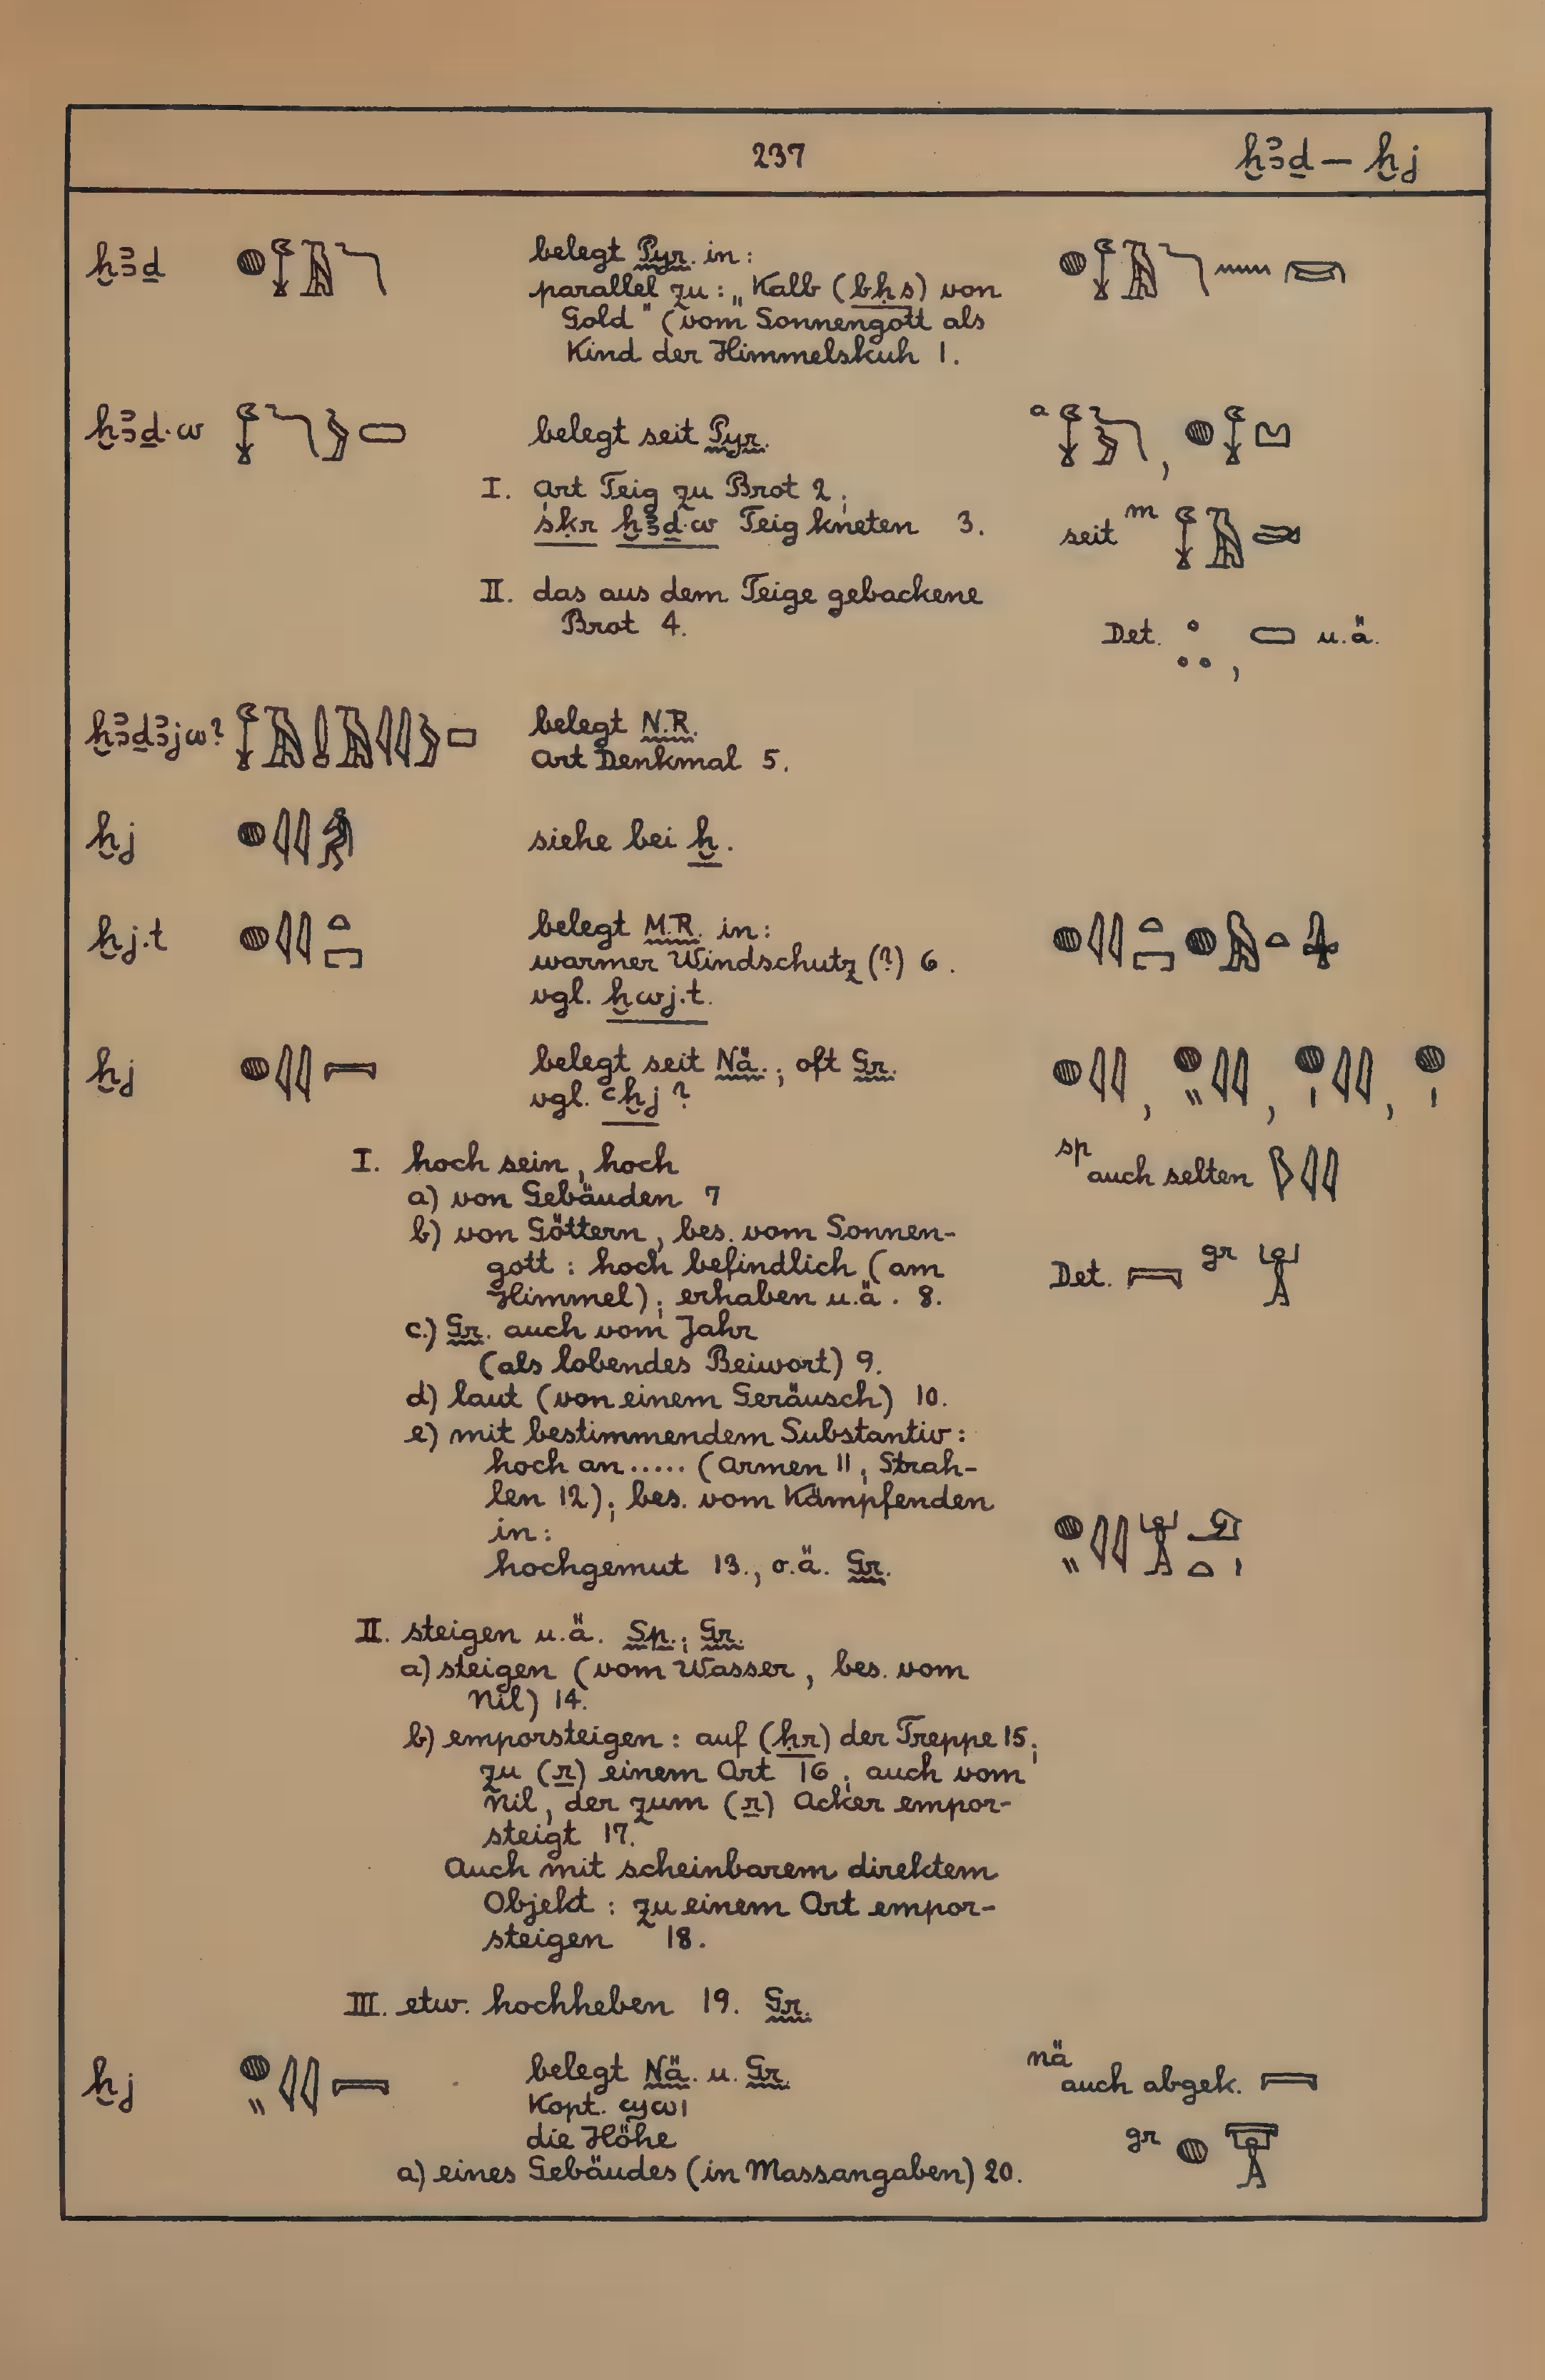 237
ḫꜣḏ – ḫj
ḫꜣḏ
belegt Pyr. in:
parallel zu: „Kalb (bḥs) von
Gold" (vom Sonnengott als
Kind der Himmelskuh 1.
ḫꜣḏ·w
belegt seit Pyr.
a
I. Art Teig zu Brot 2;
sḳr ḫꜣḏ·w Teig kneten 3.
seit m
II. das aus dem Teige gebackene
Brot 4.
Det. , u.ä.
ḫꜣḏꜣjw?
belegt N.R.
Art Denkmal 5.
ḫj
siehe bei ḫ.
ḫj.t
belegt M.R. in:
warmer Windschutz (?) 6.
vgl. ḫwj.t.
ḫj
belegt seit Nä.; oft Gr.
vgl. ꜥḫj ?
I. hoch sein, hoch
sp auch selten
a) von Gebäuden 7
b) von Göttern, bes. vom Sonnen-
gott: hoch befindlich (am
Himmel); erhaben u.ä. 8.
Det. gr
c.) Gr. auch vom Jahr
(als lobendes Beiwort) 9.
d) laut (von einem Geräusch) 10.
e) mit bestimmendem Substantiv:
hoch an..... (Armen 11, Strah-
len 12); bes. vom Kämpfenden
in:
hochgemut 13., o.ä. Gr.
II. steigen u.ä. Sp.; Gr.
a) steigen (vom Wasser, bes. vom
Nil) 14.
b) emporsteigen: auf (ḥr) der Treppe 15;
zu (r) einem Ort 16; auch vom
Nil, der zum (r) Acker empor-
steigt 17.
Auch mit scheinbarem direktem
Objekt: zu einem Ort empor-
steigen 18.
III. etw. hochheben 19. Gr.
ḫj
belegt Nä. u. Gr.
nä auch abgek.
Kopt. ϣⲱⲓ
die Höhe
gr
a) eines Gebäudes (in Massangaben) 20.